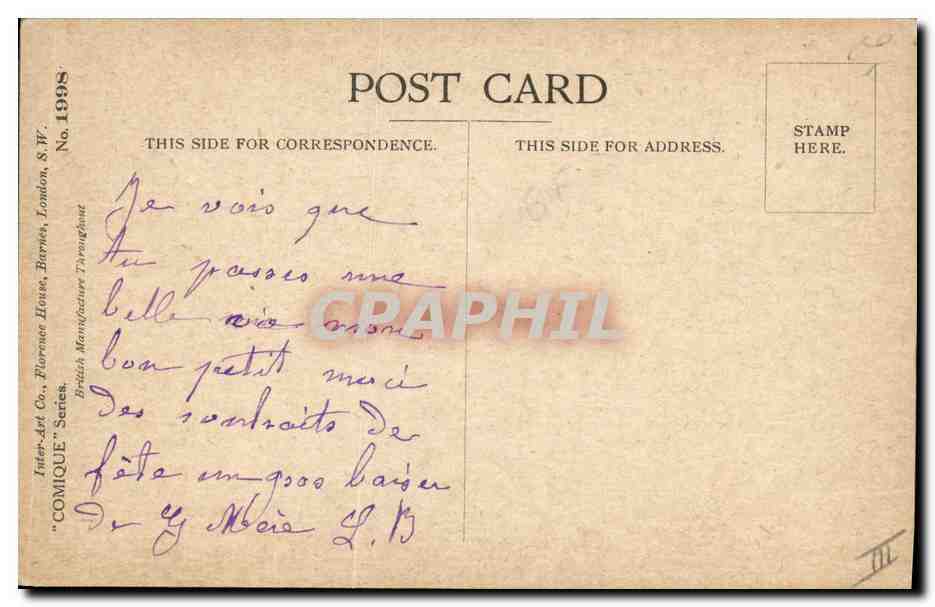 POST CARD
THIS SIDE FOR CORRESPONDENCE.
THIS SIDE FOR ADDRESS.
STAMP
HERE.
Inter-Art Co., Florence House, Barnes, London, S.W.
"COMIQUE" Series. No. 1998
British Manufacture Throughout
Je vois que
tu passes une
belle vie mon
bon petit merci
des souhaits de
fête un gros baiser
de Mère L.B
CRAPHIL
III